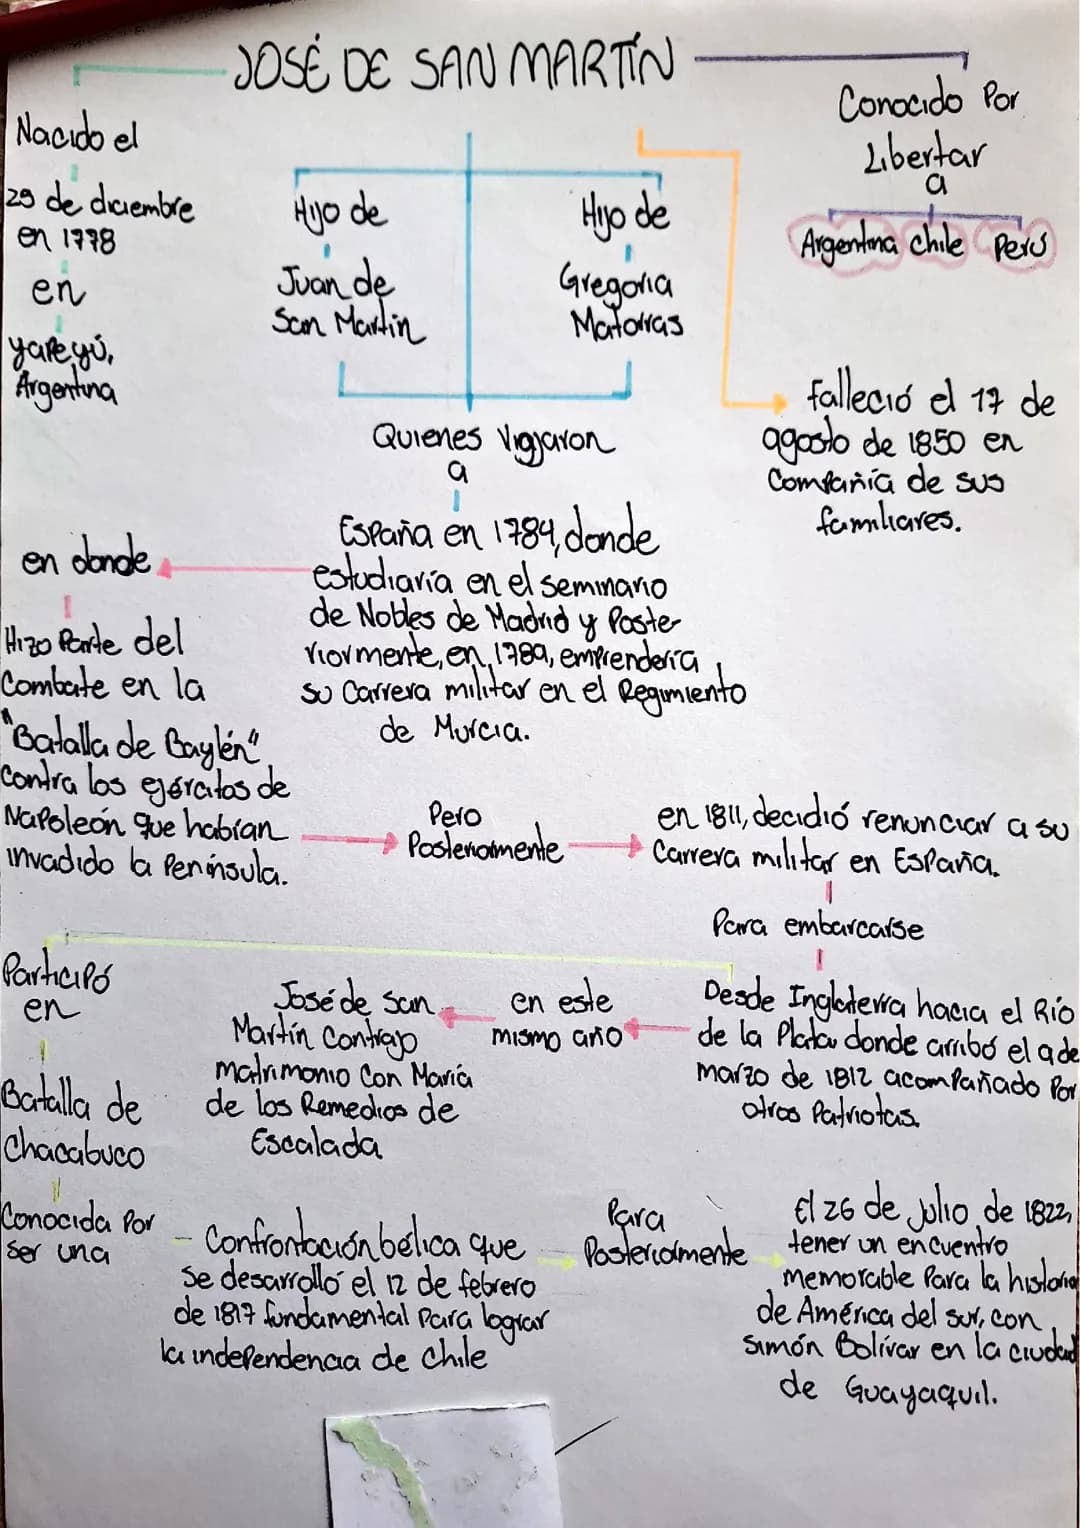 JOSÉ DE SAN MARTÍN
Nacido el
29 de diciembre
en 1778
en
yapeyú,
Argentina
Hijo de
Juan de
San Martin
Hijo de
Gregoria
Matorras
Conocido Por
Libertar
a
Argentina Chile Perú
Falleció el 17 de
agosto de 1850 en
Compañía de sus
familiares.
Quienes Viajaron
a
España en 1784, donde
estudiaría en el seminario
de Nobles de Madrid y Poste-
riormente, en 1789, emprendería
su Carrera militar en el Regimiento
de Murcia.
en donde
Hizo Parte del
Combate en la
"Batalla de Baylén"
Contra los ejércitos de
Napoleón que habían
invadido la Península.
Pero
Posteriormente
en 1811, decidió renunciar a su
Carrera militar en España.
Para embarcarse
Desde Inglaterra hacia el Río
de la Plata donde arribó el 9 de
marzo de 1812 acompañado Por
otros Patriotas.
en este
mismo año
José de San
Martín Contrajo
matrimonio Con María
de los Remedios de
Escalada
Participó
en
Batalla de
Chacabuco
Conocida Por
ser una
Confrontación bélica que
se desarrolló el 12 de febrero
de 1817 fundamental para lograr
la independencia de Chile
Para
Posteriormente
El 26 de Julio de 1822,
tener un encuentro
memorable Para la historia
de América del sur, con
Simón Bolívar en la ciudad
de Guayaquil.